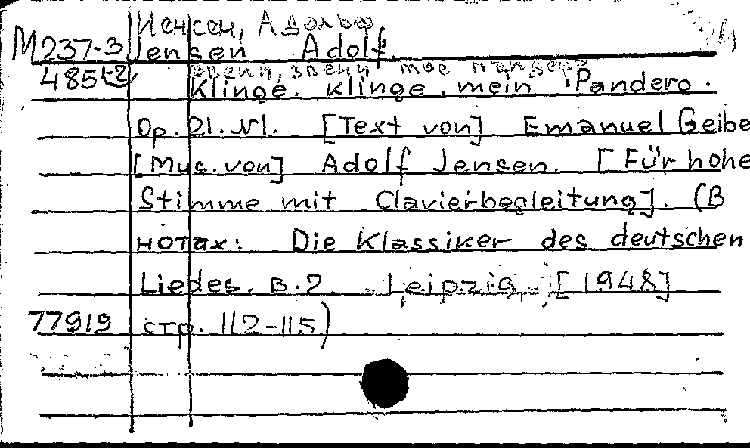 Иенсен, Адольф
М 237-3 Jensen Adolf.
485-2 Звени, звени мое пандеро
Klinge, klinge, mein Pandero.
Op. 21. N1. [Text von] Emanuel Geibe
[Mus. von] Adolf Jensen. [Für hohe
Stimme mit Clavierbegleitung]. (В
нотах: Die Klassiker des deutschen
Liedes. B. 2. Leipzig. [1948]
77919 стр. 112-115)